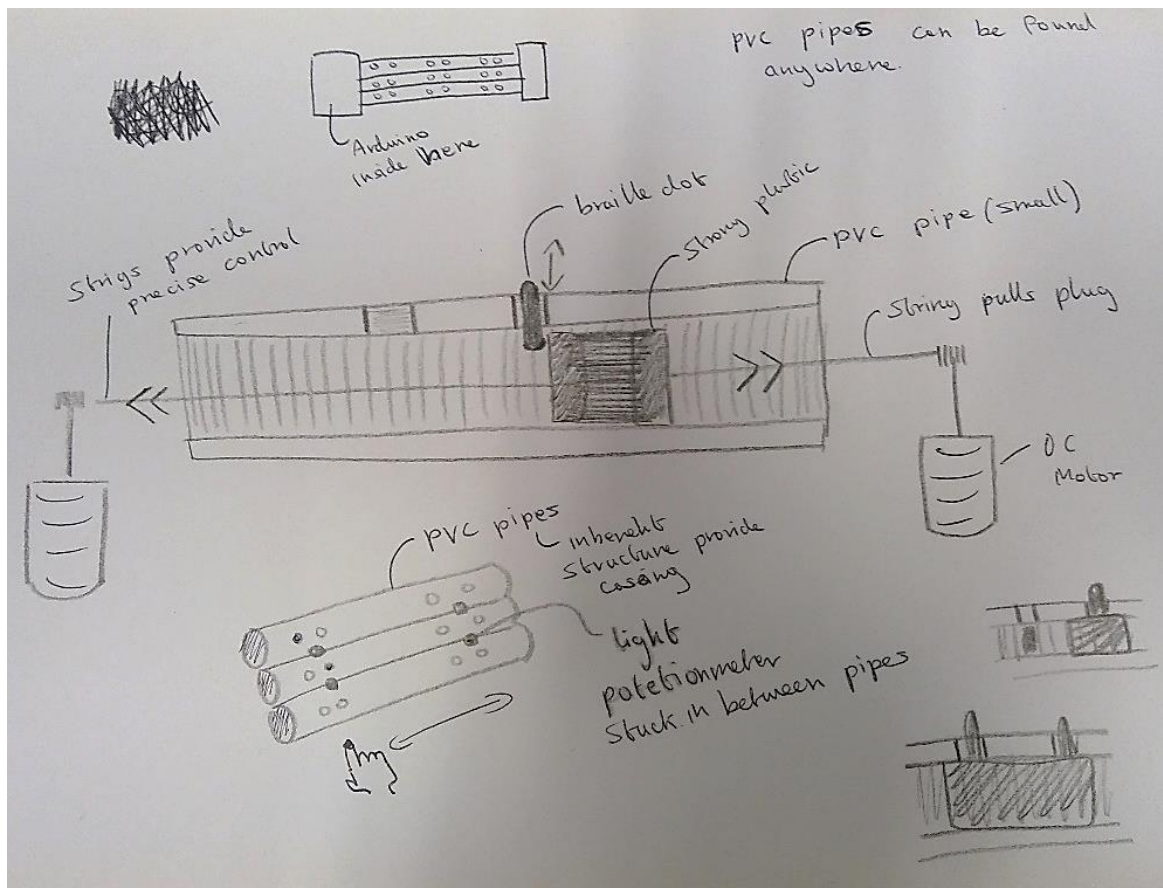 PVC pipes can be found
anywhere.
Arduino
inside here
braille dot
Strong plastic
PVC pipe (small)
Strigs provide
precise control
String pulls plug
DC
Motor
PVC pipes
inherent
structure provide
casing
light
potetionmeter
Stuck in between pipes